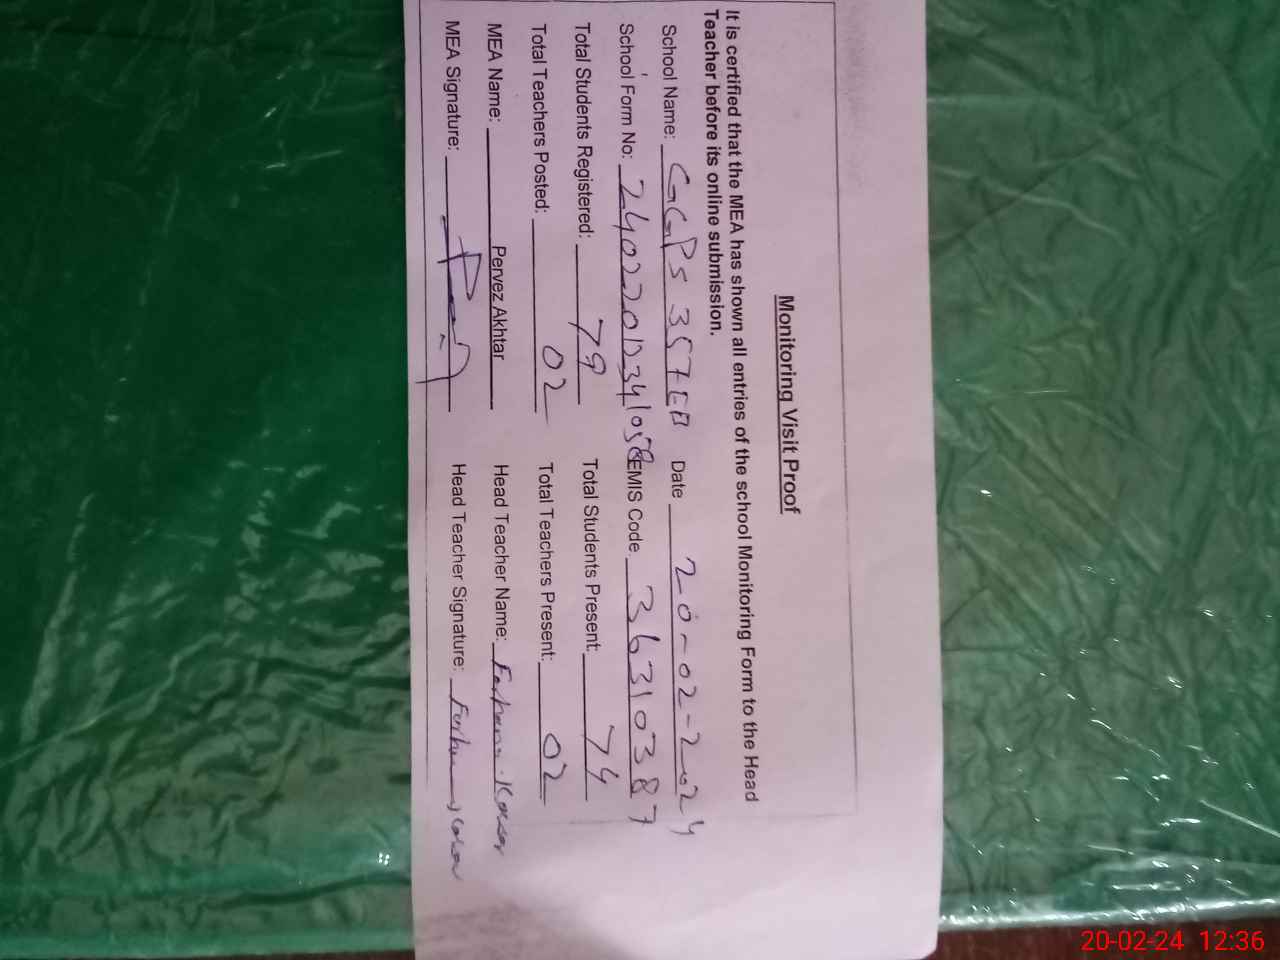 Monitoring Visit Proof
It is certified that the MEA has shown all entries of the school Monitoring Form to the Head
Teacher before its online submission.
School Name: GGPS 357EB Date 20-02-2024
School Form No: 2402201D341058 EMIS Code 36310387
Total Students Registered: 79 Total Students Present: 74
Total Teachers Posted: 02 Total Teachers Present: 02
MEA Name: Pervez Akhtar Head Teacher Name: Farhana Kausar
MEA Signature: Head Teacher Signature: Farhana Kausar
20-02-24 12:36